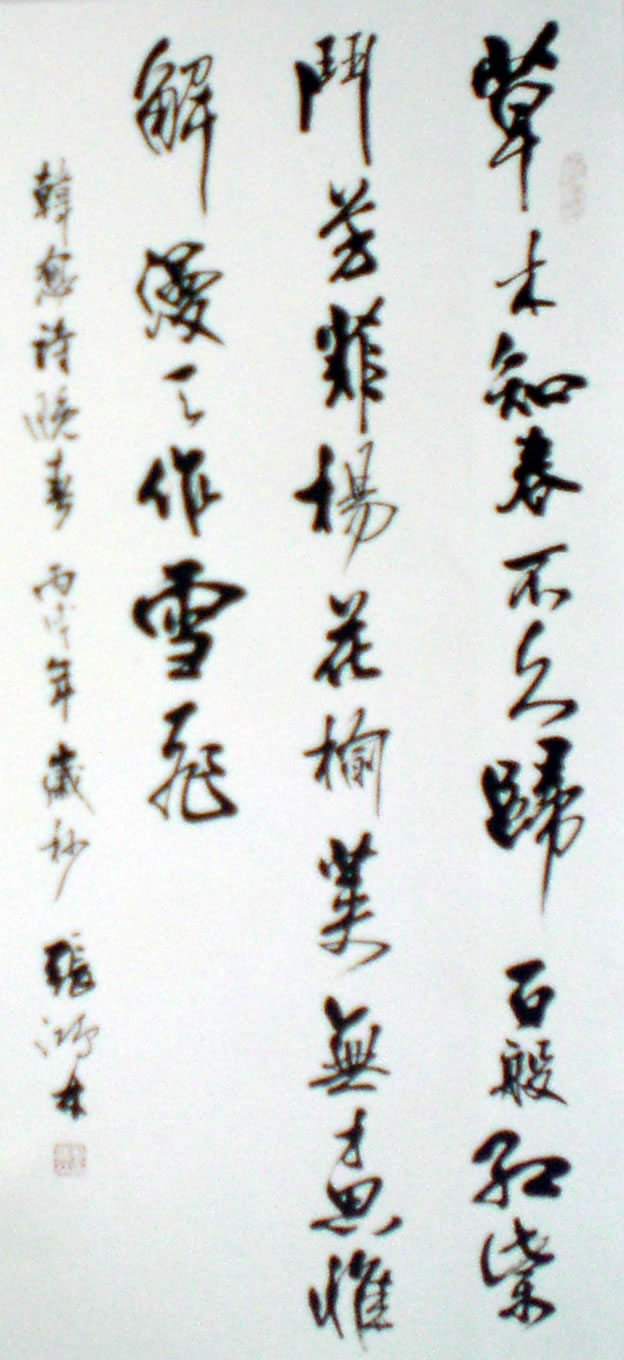 草木知春不久歸百般紅紫
鬥芳菲楊花榆莢無才思惟
解漫天作雪飛
韓愈詩晚春 丙戌年歲杪 張鴻林